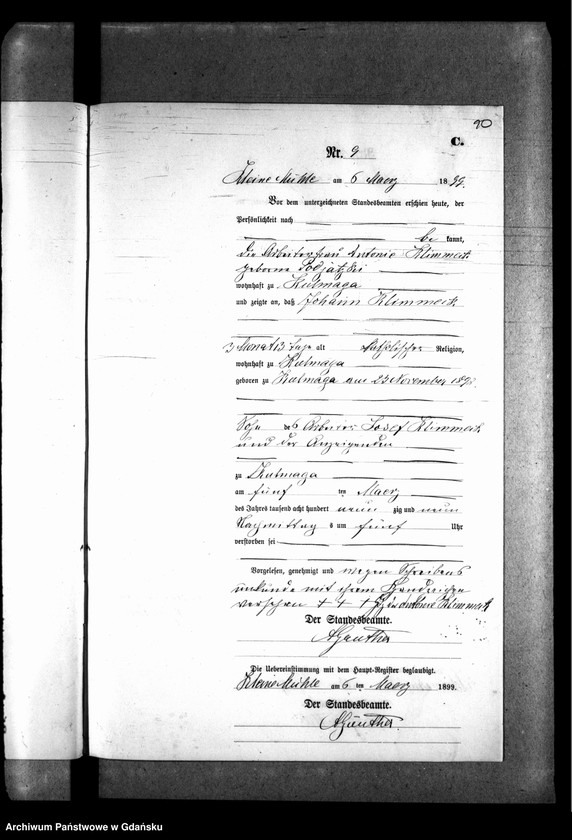 90
C.
Nr. 9
Kleine Mühle am 6 Maerz 1899.
Vor dem unterzeichneten Standesbeamten erschien heute, der
Persönlichkeit nach
be kannt,
die Arbeiterfrau Antonie Klimmeck
geborne
wohnhaft zu Kulmaga
und zeigte an, daß Johann Klimmeck
3 Monat 13 Tage alt katholischer Religion,
wohnhaft zu Kulmaga
geboren zu Kulmaga am 23 November 1898
Sohn des Arbeiters Josef Klimmeck
und der Anzeigenden
zu Kulmaga
am fünf ten Maerz
des Jahres tausend acht hundert neun zig und neun
Nachmittag s um fünf Uhr
verstorben sei
Vorgelesen, genehmigt und wegen Schreibens
unkunde mit ihrem Handzeichen
versehen + + + Antonie Klimmeck
Der Standesbeamte.
AGünther
Die Uebereinstimmung mit dem Haupt-Register beglaubigt.
Kleine Mühle am 6 ten Maerz 1899.
Der Standesbeamte.
AGünther
Archiwum Państwowe w Gdańsku